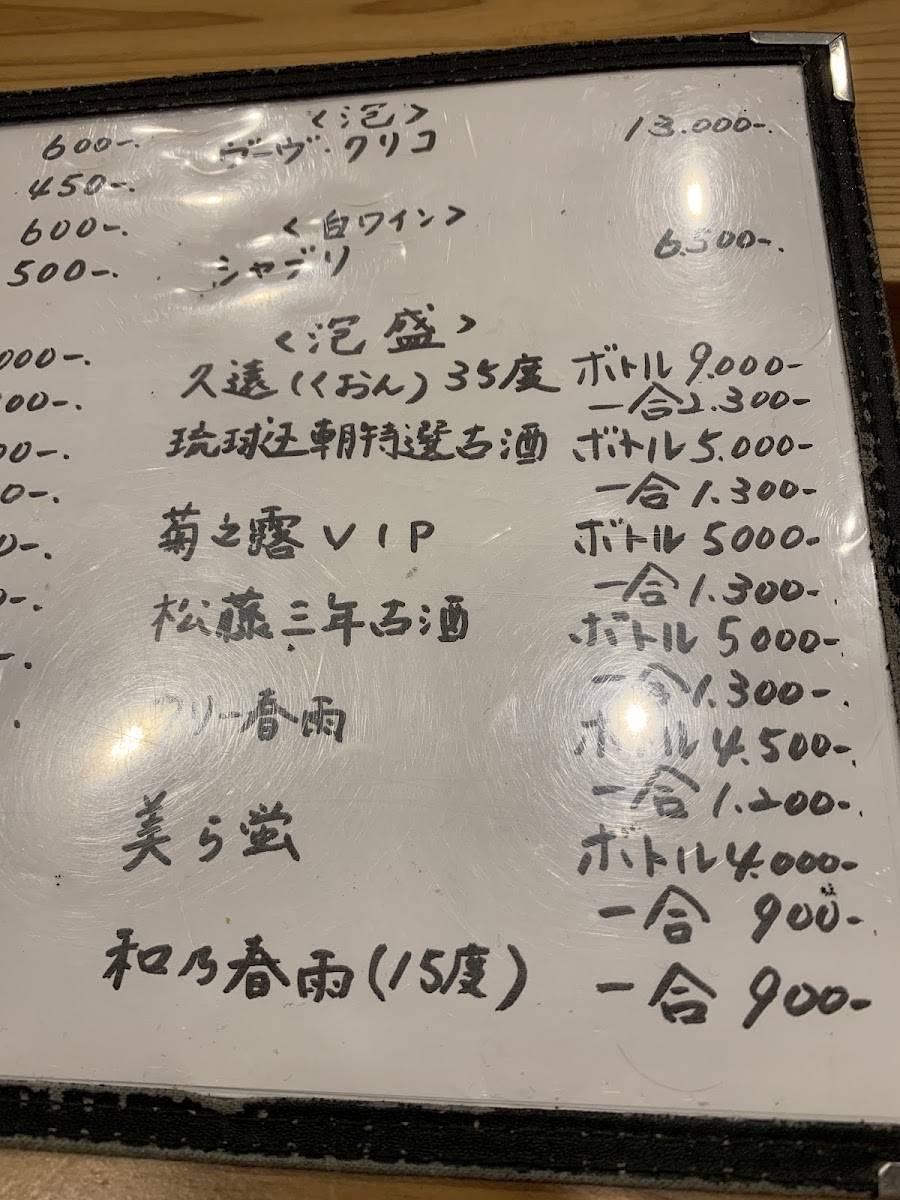 600-.
450-.
600-.
500-.
000-.
00-.
00-.
0-.
0-.
0-.
<泡>
ヴーヴ・クリコ 13.000-.
<白ワイン>
シャブリ 6.500-.
<泡盛>
久遠(くおん)35度 ボトル 9.000-
一合 2.300-
琉球王朝特選古酒 ボトル 5.000-
一合 1.300-
菊之露VIP ボトル 5000-
一合 1.300-
松藤三年古酒 ボトル 5000-
一合 1.300-
リー春雨 ボトル 4.500-.
一合 1.200-.
美ら蛍 ボトル 4.000-
一合 900-
和乃春雨(15度) 一合 900-